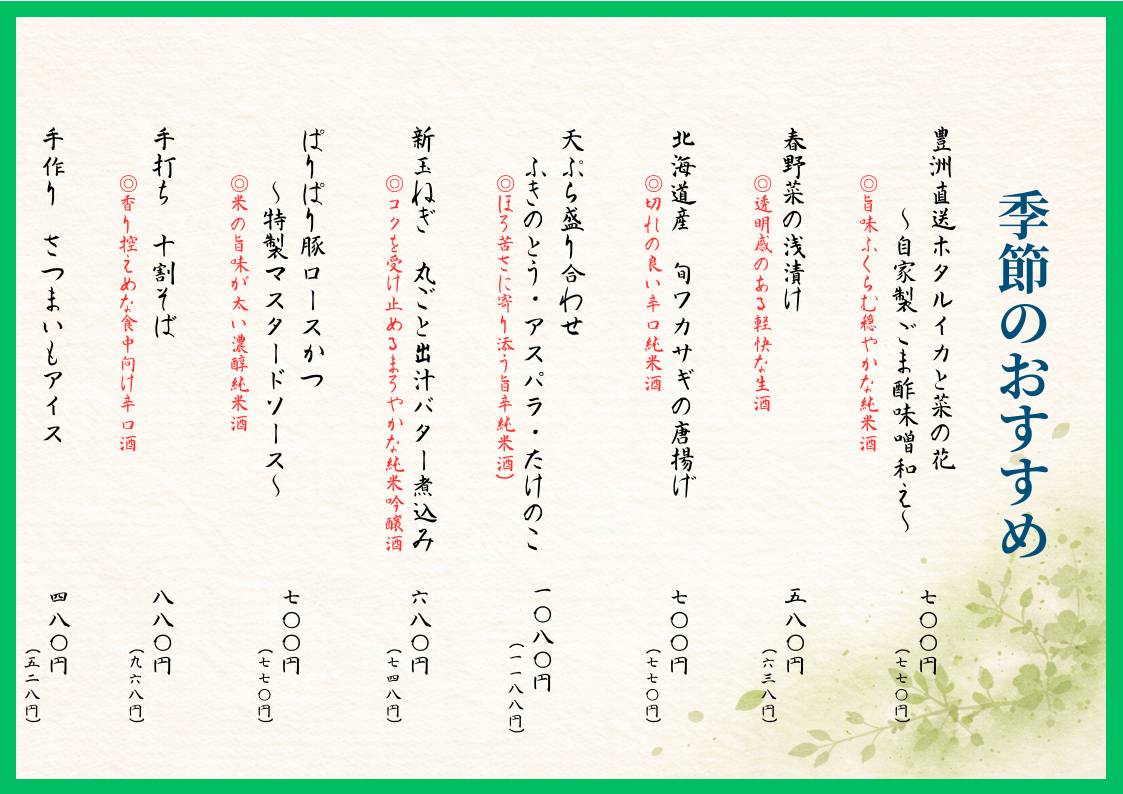 季節のおすすめ
豊洲直送ホタルイカと菜の花
～自家製ごま酢味噌和え～
七〇〇円
（七七〇円）
◎旨味ふくらむ穏やかな純米酒
春野菜の浅漬け
五八〇円
（六三八円）
◎透明感のある軽快な生酒
北海道産　旬ワカサギの唐揚げ
七〇〇円
（七七〇円）
◎切れの良い辛口純米酒
天ぷら盛り合わせ
ふきのとう・アスパラ・たけのこ
一〇八〇円
（一一八八円）
◎ほろ苦さに寄り添う旨辛純米酒）
新玉ねぎ　丸ごと出汁バター煮込み
六八〇円
（七四八円）
◎コクを受け止めるまろやかな純米吟醸酒
ぱりぱり豚ロースかつ
～特製マスタードソース～
七〇〇円
（七七〇円）
◎米の旨味が太い濃醇純米酒
手打ち　十割そば
八八〇円
（九六八円）
◎香り控えめな食中向け辛口酒
手作り　さつまいもアイス
四八〇円
（五二八円）